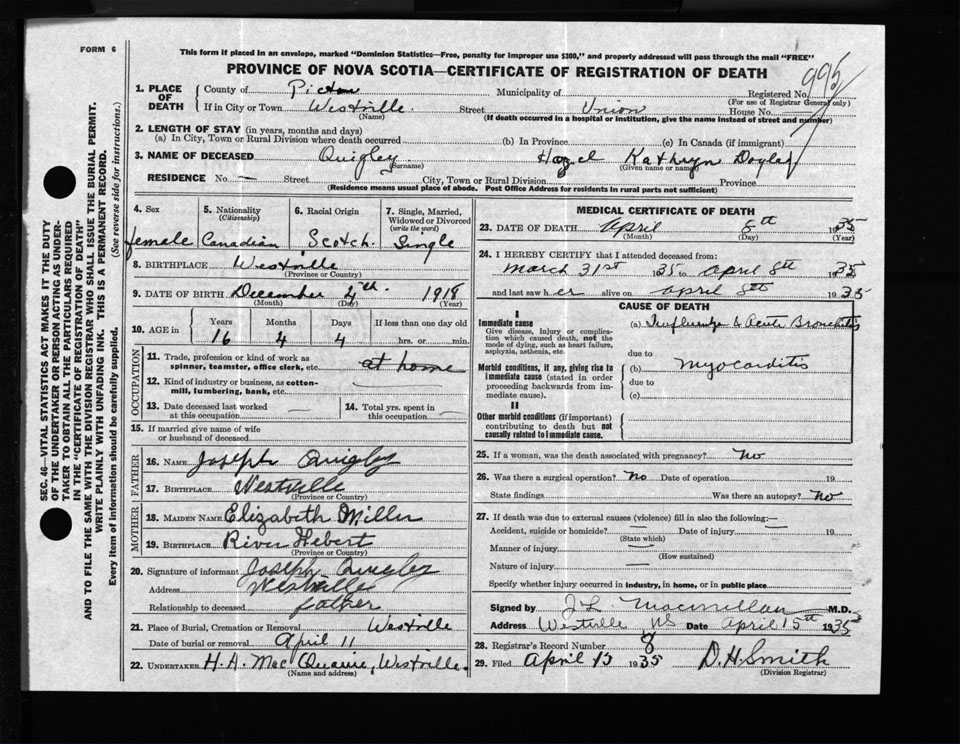 FORM 6
This form if placed in an envelope, marked "Dominion Statistics—Free, penalty for improper use $300," and properly addressed will pass through the mail "FREE"
PROVINCE OF NOVA SCOTIA—CERTIFICATE OF REGISTRATION OF DEATH
995
1. PLACE OF DEATH County of Pictou Municipality of Registered No.
(For use of Registrar General only)
If in City or Town Westville Street Union House No.
(Name) (If death occurred in a hospital or institution, give the name instead of street and number)
2. LENGTH OF STAY (in years, months and days)
(a) In City, Town or Rural Division where death occurred (b) In Province (c) In Canada (if immigrant)
3. NAME OF DECEASED Quigley Hazel Kathryn
(Surname) (Given name or names)
RESIDENCE No. — Street City, Town or Rural Division Province
(Residence means usual place of abode. Post Office Address for residents in rural parts not sufficient)
SEC. 46—VITAL STATISTICS ACT MAKES IT THE DUTY
OF THE UNDERTAKER OR PERSON ACTING AS UNDER-
TAKER TO OBTAIN ALL THE PARTICULARS REQUIRED
IN THE "CERTIFICATE OF REGISTRATION OF DEATH"
AND TO FILE THE SAME WITH THE DIVISION REGISTRAR WHO SHALL ISSUE THE BURIAL PERMIT.
WRITE PLAINLY WITH UNFADING INK. THIS IS A PERMANENT RECORD.
Every item of information should be carefully supplied. (See reverse side for instructions.)
4. Sex 5. Nationality (Citizenship) 6. Racial Origin 7. Single, Married, Widowed or Divorced (write the word)
female Canadian Scotch. Single
8. BIRTHPLACE Westville
(Province or Country)
9. DATE OF BIRTH December 4th 1918
(Month) (Day) (Year)
10. AGE in Years Months Days If less than one day old
16 4 4 hrs. or min.
OCCUPATION
11. Trade, profession or kind of work as spinner, teamster, office clerk, etc. at home
12. Kind of industry or business, as cotton-mill, lumbering, bank, etc. —
13. Date deceased last worked at this occupation — 14. Total yrs. spent in this occupation —
15. If married give name of wife or husband of deceased
FATHER
16. NAME Joseph Quigley
17. BIRTHPLACE Westville
(Province or Country)
MOTHER
18. MAIDEN NAME Elizabeth Miller
19. BIRTHPLACE River Hebert
(Province or Country)
20. Signature of informant Joseph Quigley
Address Westville
Relationship to deceased father
21. Place of Burial, Cremation or Removal Westville
Date of burial or removal April 11
22. UNDERTAKER H. A. Mac Quarrie, Westville.
(Name and address)
MEDICAL CERTIFICATE OF DEATH
23. DATE OF DEATH April 8th 1935
(Month) (Day) (Year)
24. I HEREBY CERTIFY that I attended deceased from:
March 31st 1935 to April 8th 1935
and last saw her alive on April 8th 1935
CAUSE OF DEATH
I
Immediate cause
Give disease, injury or complication which caused death, not the mode of dying, such as heart failure, asphyxia, asthenia, etc.
(a) Influenza & Acute Bronchitis
due to
Morbid conditions, if any, giving rise to immediate cause (stated in order proceeding backwards from immediate cause).
(b) Myocarditis
due to
(c)
II
Other morbid conditions (if important) contributing to death but not causally related to immediate cause.
25. If a woman, was the death associated with pregnancy? No
26. Was there a surgical operation? No Date of operation 19
State findings Was there an autopsy? No
27. If death was due to external causes (violence) fill in also the following: —
Accident, suicide or homicide? — Date of injury 19
(State which)
Manner of injury —
(How sustained)
Nature of injury —
Specify whether injury occurred in industry, in home, or in public place
Signed by J L Macmillan M.D.
Address Westville NS Date April 15th 1935
28. Registrar's Record Number 8
29. Filed April 15 1935 D. H. Smith
(Division Registrar)